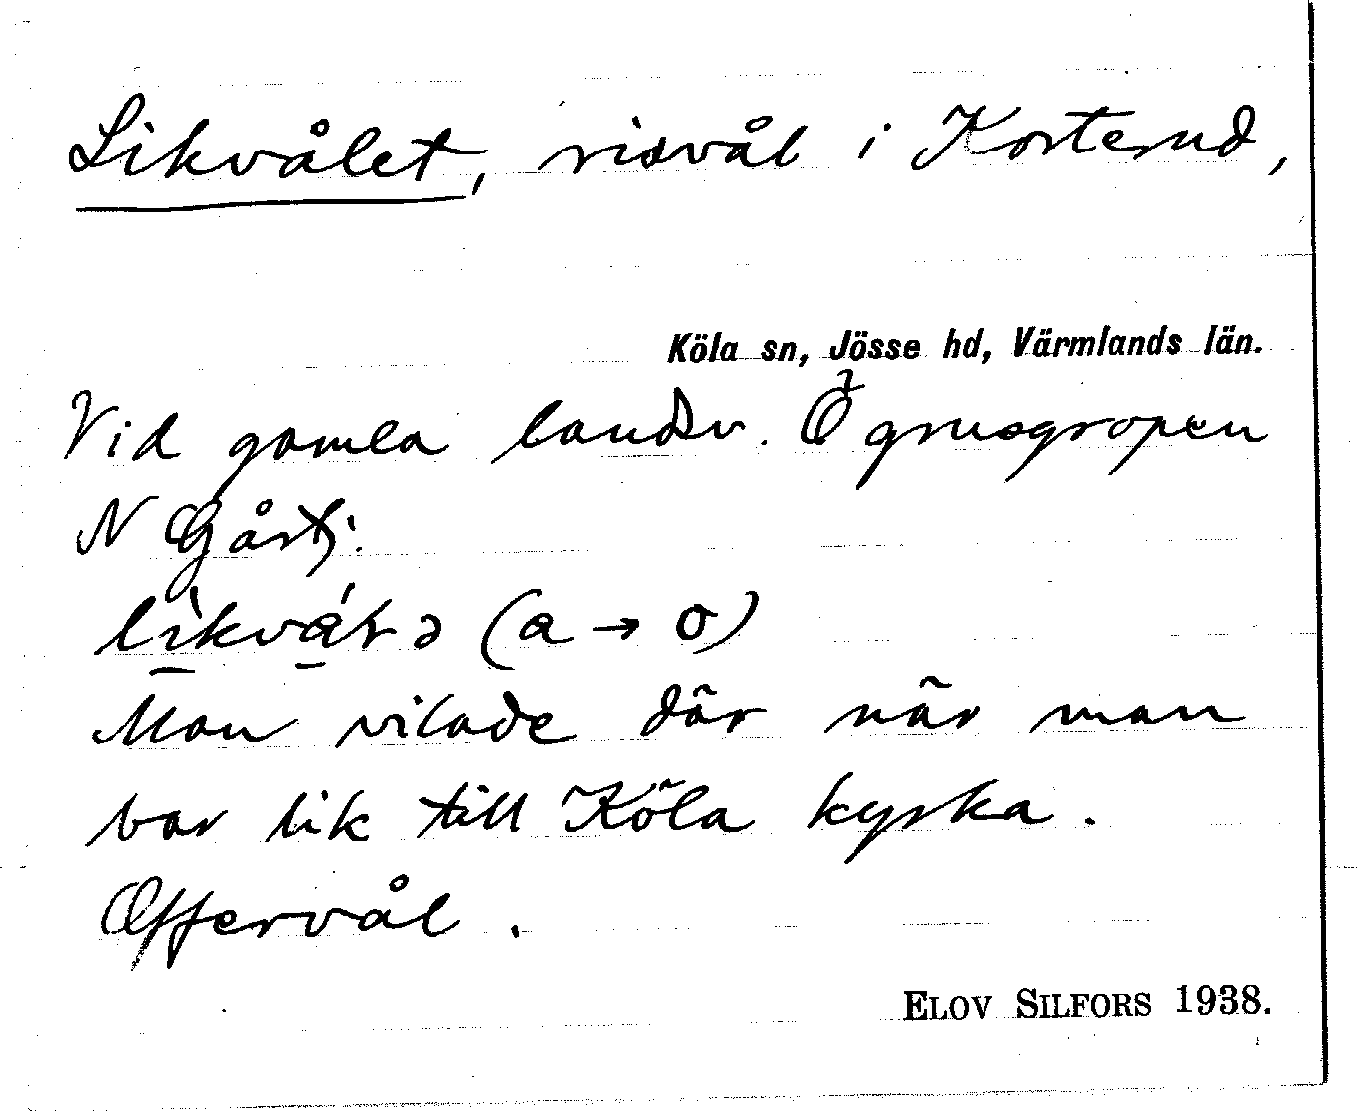 Likvålet, risvål i Korterud,
Köla sn, Jösse hd, Värmlands län.
Vid gamla landsv. Ö grusgropen
N Gårtj.
lìkvá̱ɫə (a → o)
Man vilade där när man
bar lik till Köla kyrka.
Offervål.
ELOV SILFORS 1938.